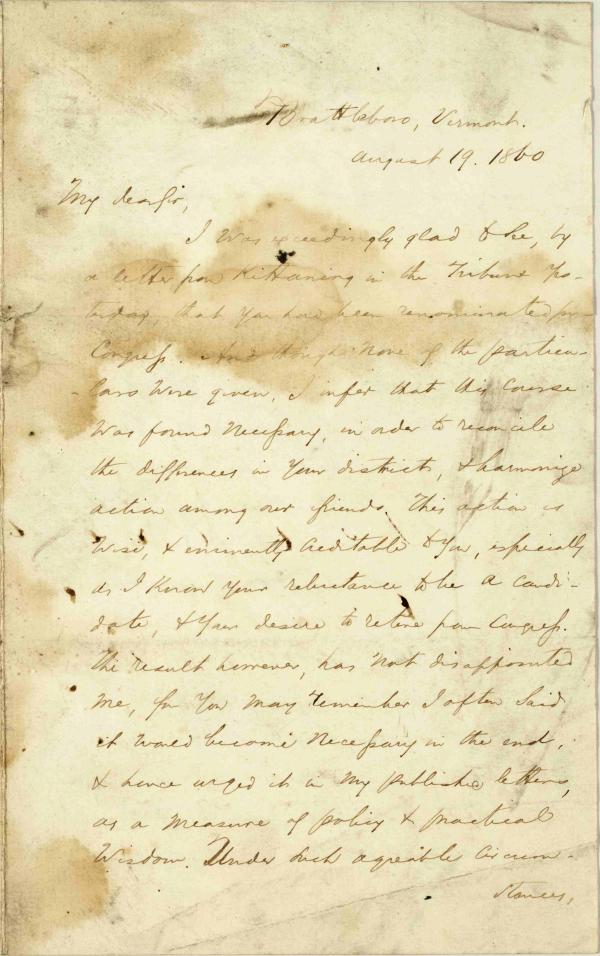 Brattleboro, Vermont.
August 19. 1860
My dear Sir,
I was exceedingly glad to see, by
a letter from Kittaning in the Tribune yes-
terday, that you have been renominated for
Congress. And though none of the particu-
-lars were given, I infer that this course
was found necessary, in order to reconcile
the differences in your districts, & harmonize
action among our friends. This action is
wise, & eminently creditable to you, especially
as I know your reluctance to be a candi-
date, & your desire to retire from Congress.
The result however, has not disappointed
me, for you may remember I often said
it would become necessary in the end,
& hence urged it in my published letters,
as a measure of policy & practical
wisdom. Under such agreable circum-
stances,